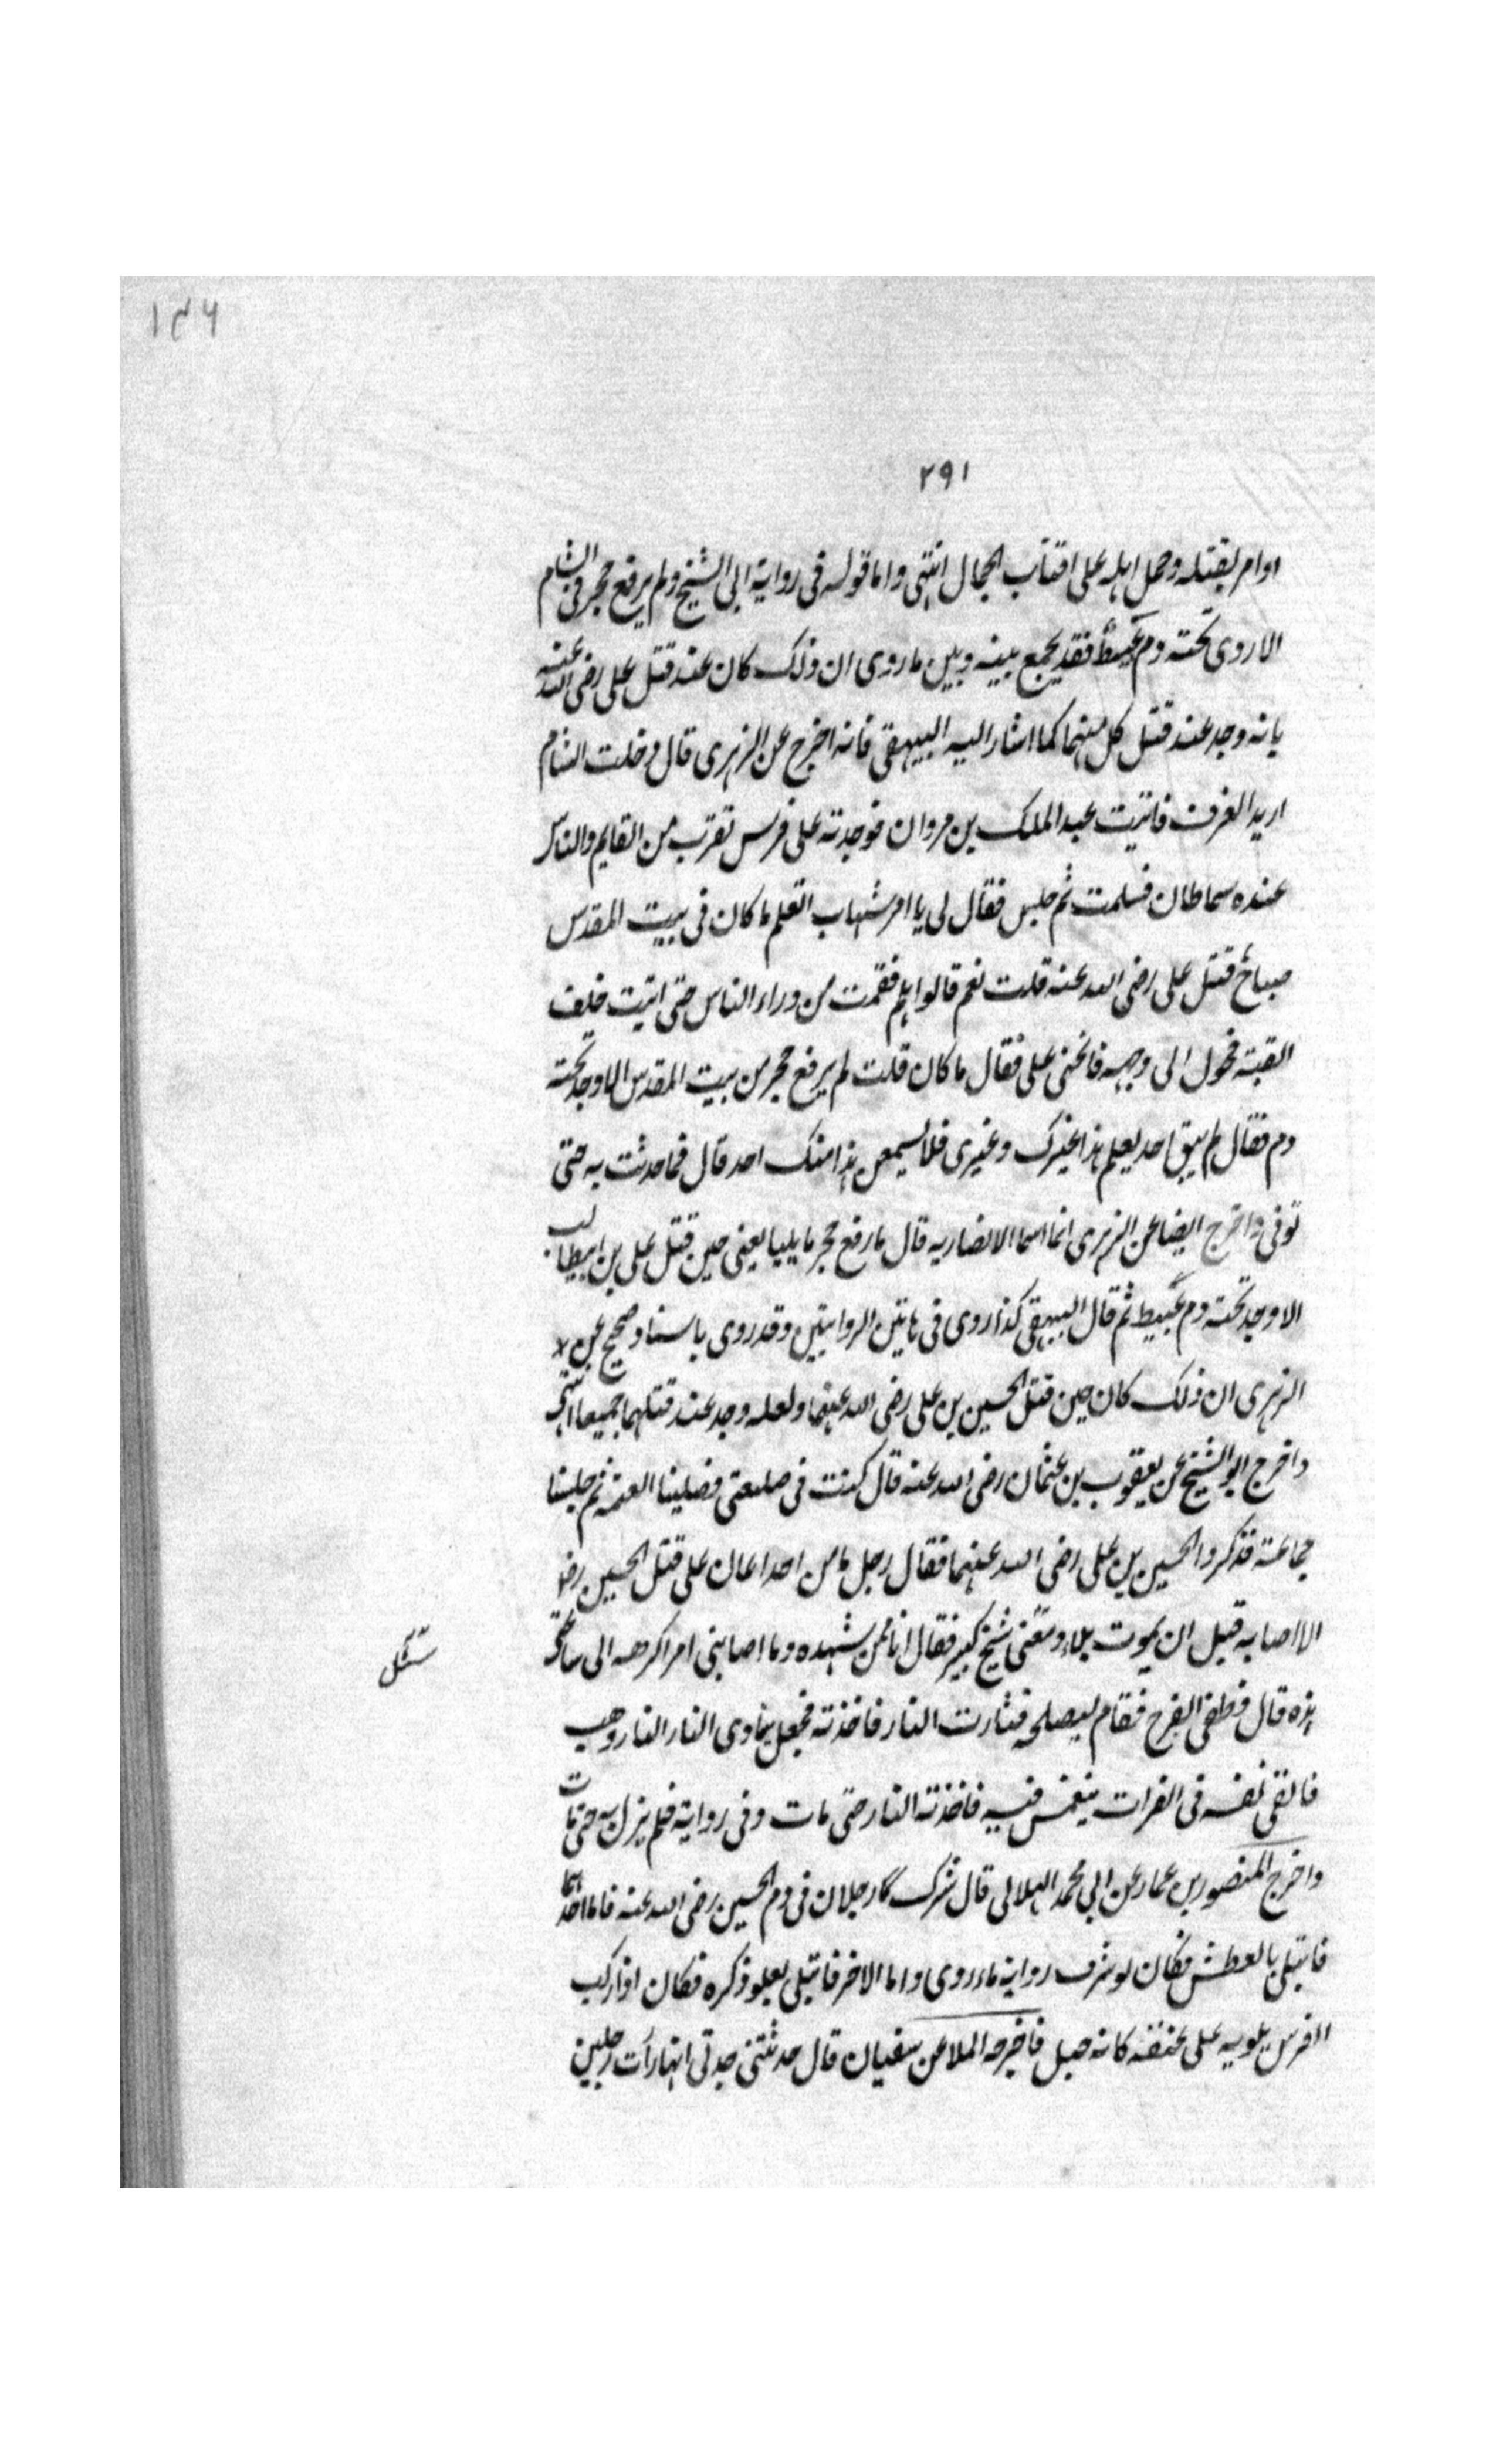 ۱۴۶
۲۹۱
او امر بقتله وحمل اهله على اقتاب الجمال انتهى واما قوله فى رواية ابى الشيخ ولم يرفع حجر فى الشام
الا روى تحته دم عبيط فقد يجمع بينه وبين ما روى ان ذلك كان عند قتل على رضى الله عنه
بانه وجد عند قتل كل منهما كما اشار اليه البيهقى فانه اخرج عن الزهرى قال دخلت الشام
اريد الغزو فاتيت عبد الملك بن مروان فوجدته على فرس تقرب من القايم والناس
عنده سماطان فسلمت ثم جلس فقال لى يا امر شهاب اتعلم ما كان فى بيت المقدس
صباح قتل على رضى الله عنه قلت نعم قالوا هلم فقمت من وراء الناس حتى اتيت خلف
القبة فحول الى وجهه فانحنى على فقال ما كان قلت لم يرفع حجر من بيت المقدس الا وجد تحته
دم فقال لم يبق احد يعلم هذا غيرك وغيرى فلا يسمعن هذا منك احد قال فما حدثت به حتى
توفى واخرج ايضا عن الزهرى انما اسما الانصاريه قال ما رفع حجر بايليا يعنى حين قتل على بن ابيطالب
الا وجد تحته دم عبيط ثم قال البيهقى كذا روى فى هاتين الروايتين وقد روى باسناد صحيح عن
الزهرى ان ذلك كان حين قتل الحسين بن على رضى الله عنهما ولعله وجد عند قتلهما جميعا انتهى
واخرج ابو الشيخ عن يعقوب بن عثمان رضى الله عنه قال كنت فى ضيعتى فصلينا العتمه ثم جلسنا
جماعة فذكروا الحسين بن على رضى الله عنهما فقال رجل ما من احد اعان على قتل الحسين رضى
الا اصابه قبل ان يموت بلاء ومعنى شيخ كبير فقال انا ممن شهده وما اصابنى امر اكرهه الى ساعتى
هذه قال فطفى السراج فقام ليصلحه فثارت النار فاخذته فجعل ينادى النار النار وذهب
فالقى نفسه فى الفرات ينغمس فيه فاخذته النار حتى مات وفى رواية فلم يزل به حتى مات
واخرج المنصور بن عمار عن ابى محمد الهلالى قال شرك رجلان فى دم الحسين رضى الله عنه فاما احدهما
فابتلى بالعطش فكان لو شرب راوية ما روى واما الاخر فابتلى بعلو ذكره فكان اذا ركب
الفرس يلويه على عنقه كانه حبل فاخرجه الملا عن سفيان قال حدثتنى جدتى انها رأت رجلين